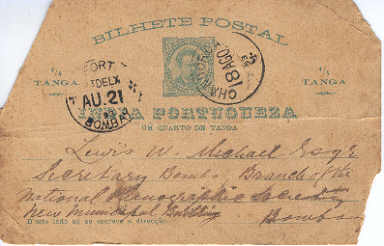 BILHETE POSTAL
¼ TANGA
¼ TANGA
18 AGO
FORT
AU. 21
BOMBAY
INDIA PORTUGUEZA
UM QUARTO DE TANGA
Lewis W. Michael Esqre
Secretary Bombay Branch of the
National Phonographic Society
New Municipal Building
Bombay
D'este lado só se escreve a direcção.